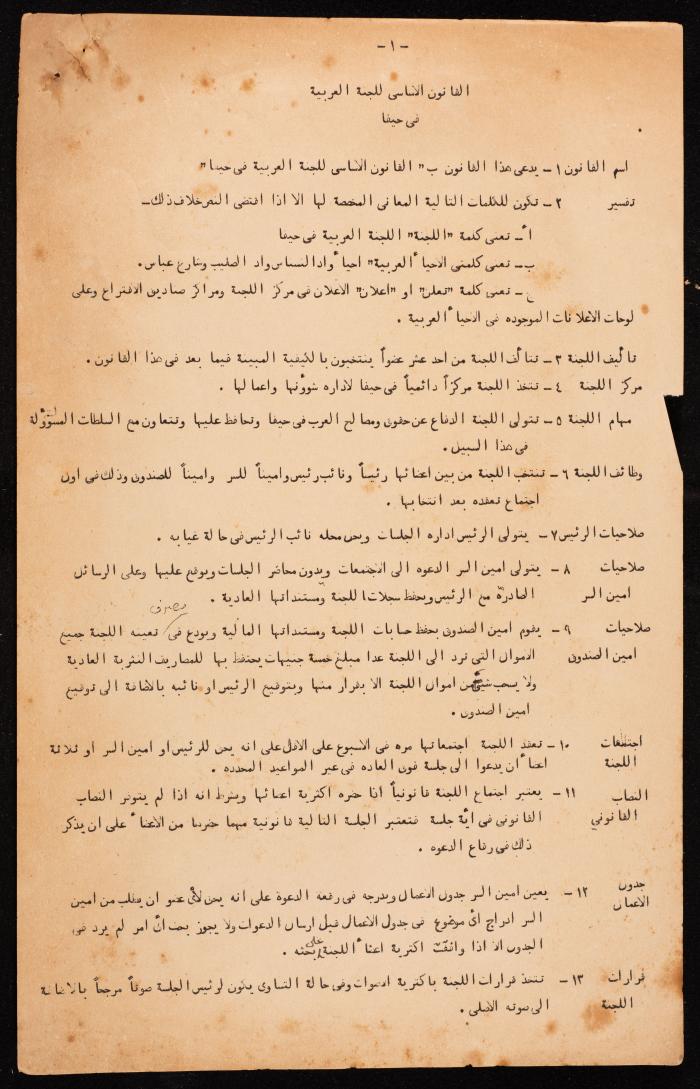 - ١ -
القانون الاساسى للجنة العربية
فى حيفا
اسم القانون ١ - يدعى هذا القانون ب " القانون الاساسى للجنة العربية فى حيفا "
تفسير ٢ - تكون للكلمات التالية المعانى المخصصة لها الا اذا اقتضى النص خلاف ذلك -
أ - تعنى كلمة " اللجنة " اللجنة العربية فى حيفا
ب - تعنى كلمتى الاحياء العربية " احياء وادالنسناس واد الصليب وشارع عباس .
ج - تعنى كلمة " تعلن " او " اعلان " الاعلان فى مركز اللجنة ومراكز صناديق الاقتراع وعلى
لوحات الاعلانات الموجوده فى الاحياء العربية .
تأليف اللجنة ٣ - تتألف اللجنة من احد عشر عضواً ينتخبون بالكيفية المبينة فيما بعد فى هذا القانون .
مركز اللجنة ٤ - تتخذ اللجنة مركزاً دائمياً فى حيفا لاداره شؤونها واعمالها .
مهام اللجنة ٥ - تتولى اللجنة الدفاع عن حقوق ومصالح العرب فى حيفا وتحافظ عليها وتتعاون مع السلطات المسؤولة
فى هذا السبيل .
وظائف اللجنة ٦ - تنتخب اللجنة من بين اعضائها رئيساً ونائب رئيس واميناً للسر واميناً للصندوق وذلك فى اول
اجتماع تعقده بعد انتخابها .
صلاحيات الرئيس ٧ - يتولى الرئيس اداره الجلسات ويحل محله نائب الرئيس فى حالة غيابه .
صلاحيات ٨ - يتولى امين السر الدعوه الى الاجتمعات ويدون محاضر الجلسات ويوقع عليها وعلى الرسائل
امين السر الصادرة مع الرئيس ويحفظ سجلات اللجنة ومستنداتها العادية .
مصرف
صلاحيات ٩ - يقوم امين الصندوق بحفظ حسابات اللجنة ومستنداتها المالية ويودع فى تعينه اللجنة جميع
امين الصندوق الاموال التى ترد الى اللجنة عدا مبلغ خمسة جنيهات يحتفظ بها للمصاريف النثرية العادية
ولا يسحب شيئ من اموال اللجنة الا بقرار منها وبتوقيع الرئيس او نائبه بالاضافة الى توقيع
امين الصندوق .
اجتمعات ١٠ - تعقد اللجنة اجتمعاتها مره فى الاسبوع على الاقل على انه يحق للرئيس او امين السر او ثلاثة
اللجنة اعضاء ان يدعوا الى جلسة فوق العاده فى غير المواعيد المحدده .
النصاب ١١ - يعتبر اجتماع اللجنة قانونياً اذا حضره اكثرية اعضائها ويشترط انه اذا لم يتوفر النصاب
القانونى القانونى فى أية جلسة فتعتبر الجلسة التالية قانونية مهما حضرها من الاعضاء على ان يذكر
ذلك فى رقاع الدعوه .
جدول ١٢ - يعين امين السر جدول الاعمال ويدرجه فى رقعة الدعوة على انه يحق لأى عضو ان يطلب من امين
الاعمال السر ادراج أى موضوع فى جدول الاعمال قبل ارسال الدعوات ولا يجوز بحث أى امر لم يرد فى
الجدول الا اذا وافقت اكثرية اعضاء اللجنة على بحثه .
قرارات ١٣ - تتخذ قرارات اللجنة باكثرية الاصوات وفى حالة التساوى يكون لرئيس الجلسة صوتاً مرجحاً بالاضافة
اللجنة الى صوته الاصلى .